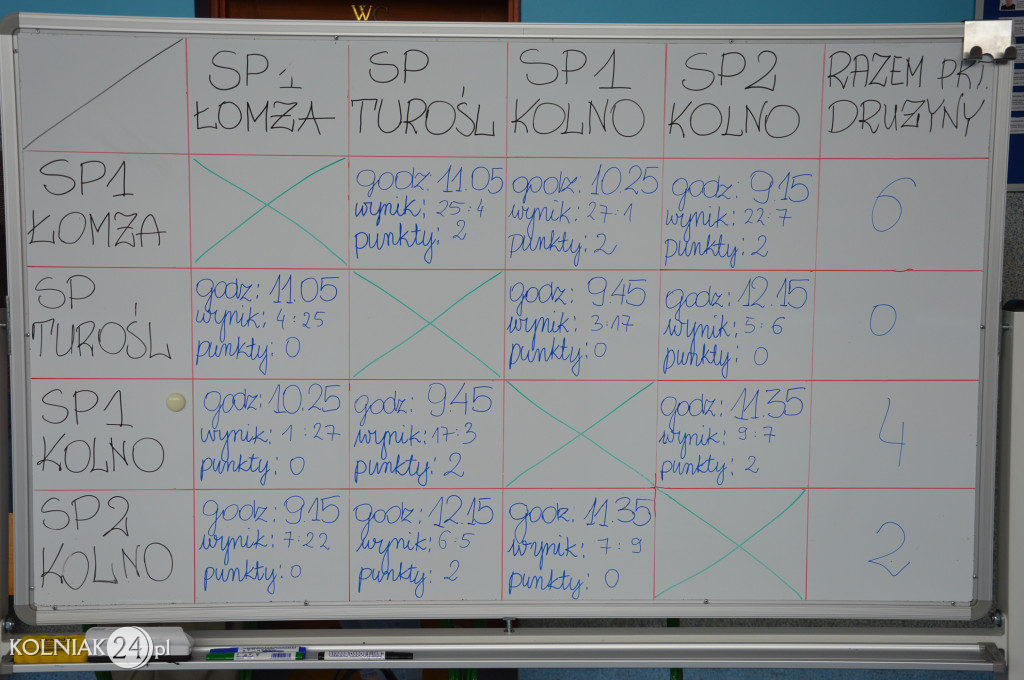 SP 1 ŁOMŻA
SP TUROŚL
SP 1 KOLNO
SP2 KOLNO
RAZEM PKT. DRUŻYNY
SP1 ŁOMŻA
godz. 11.05
wynik: 25:4
punkty: 2
godz. 10.25
wynik: 27:1
punkty: 2
godz. 9.15
wynik: 22:7
punkty: 2
6
SP TUROŚL
godz: 11.05
wynik: 4:25
punkty: 0
godz: 9.45
wynik: 3:17
punkty: 0
godz: 12.15
wynik: 5:6
punkty: 0
0
SP1 KOLNO
godz: 10.25
wynik: 1:27
punkty: 0
godz: 9.45
wynik: 17:3
punkty: 2
godz: 11.35
wynik: 9:7
punkty: 2
4
SP2 KOLNO
godz: 9.15
wynik: 7:22
punkty: 0
godz: 12.15
wynik: 6:5
punkty: 2
godz. 11.35
wynik: 7:9
punkty: 0
2
KOLNIAK24.pl